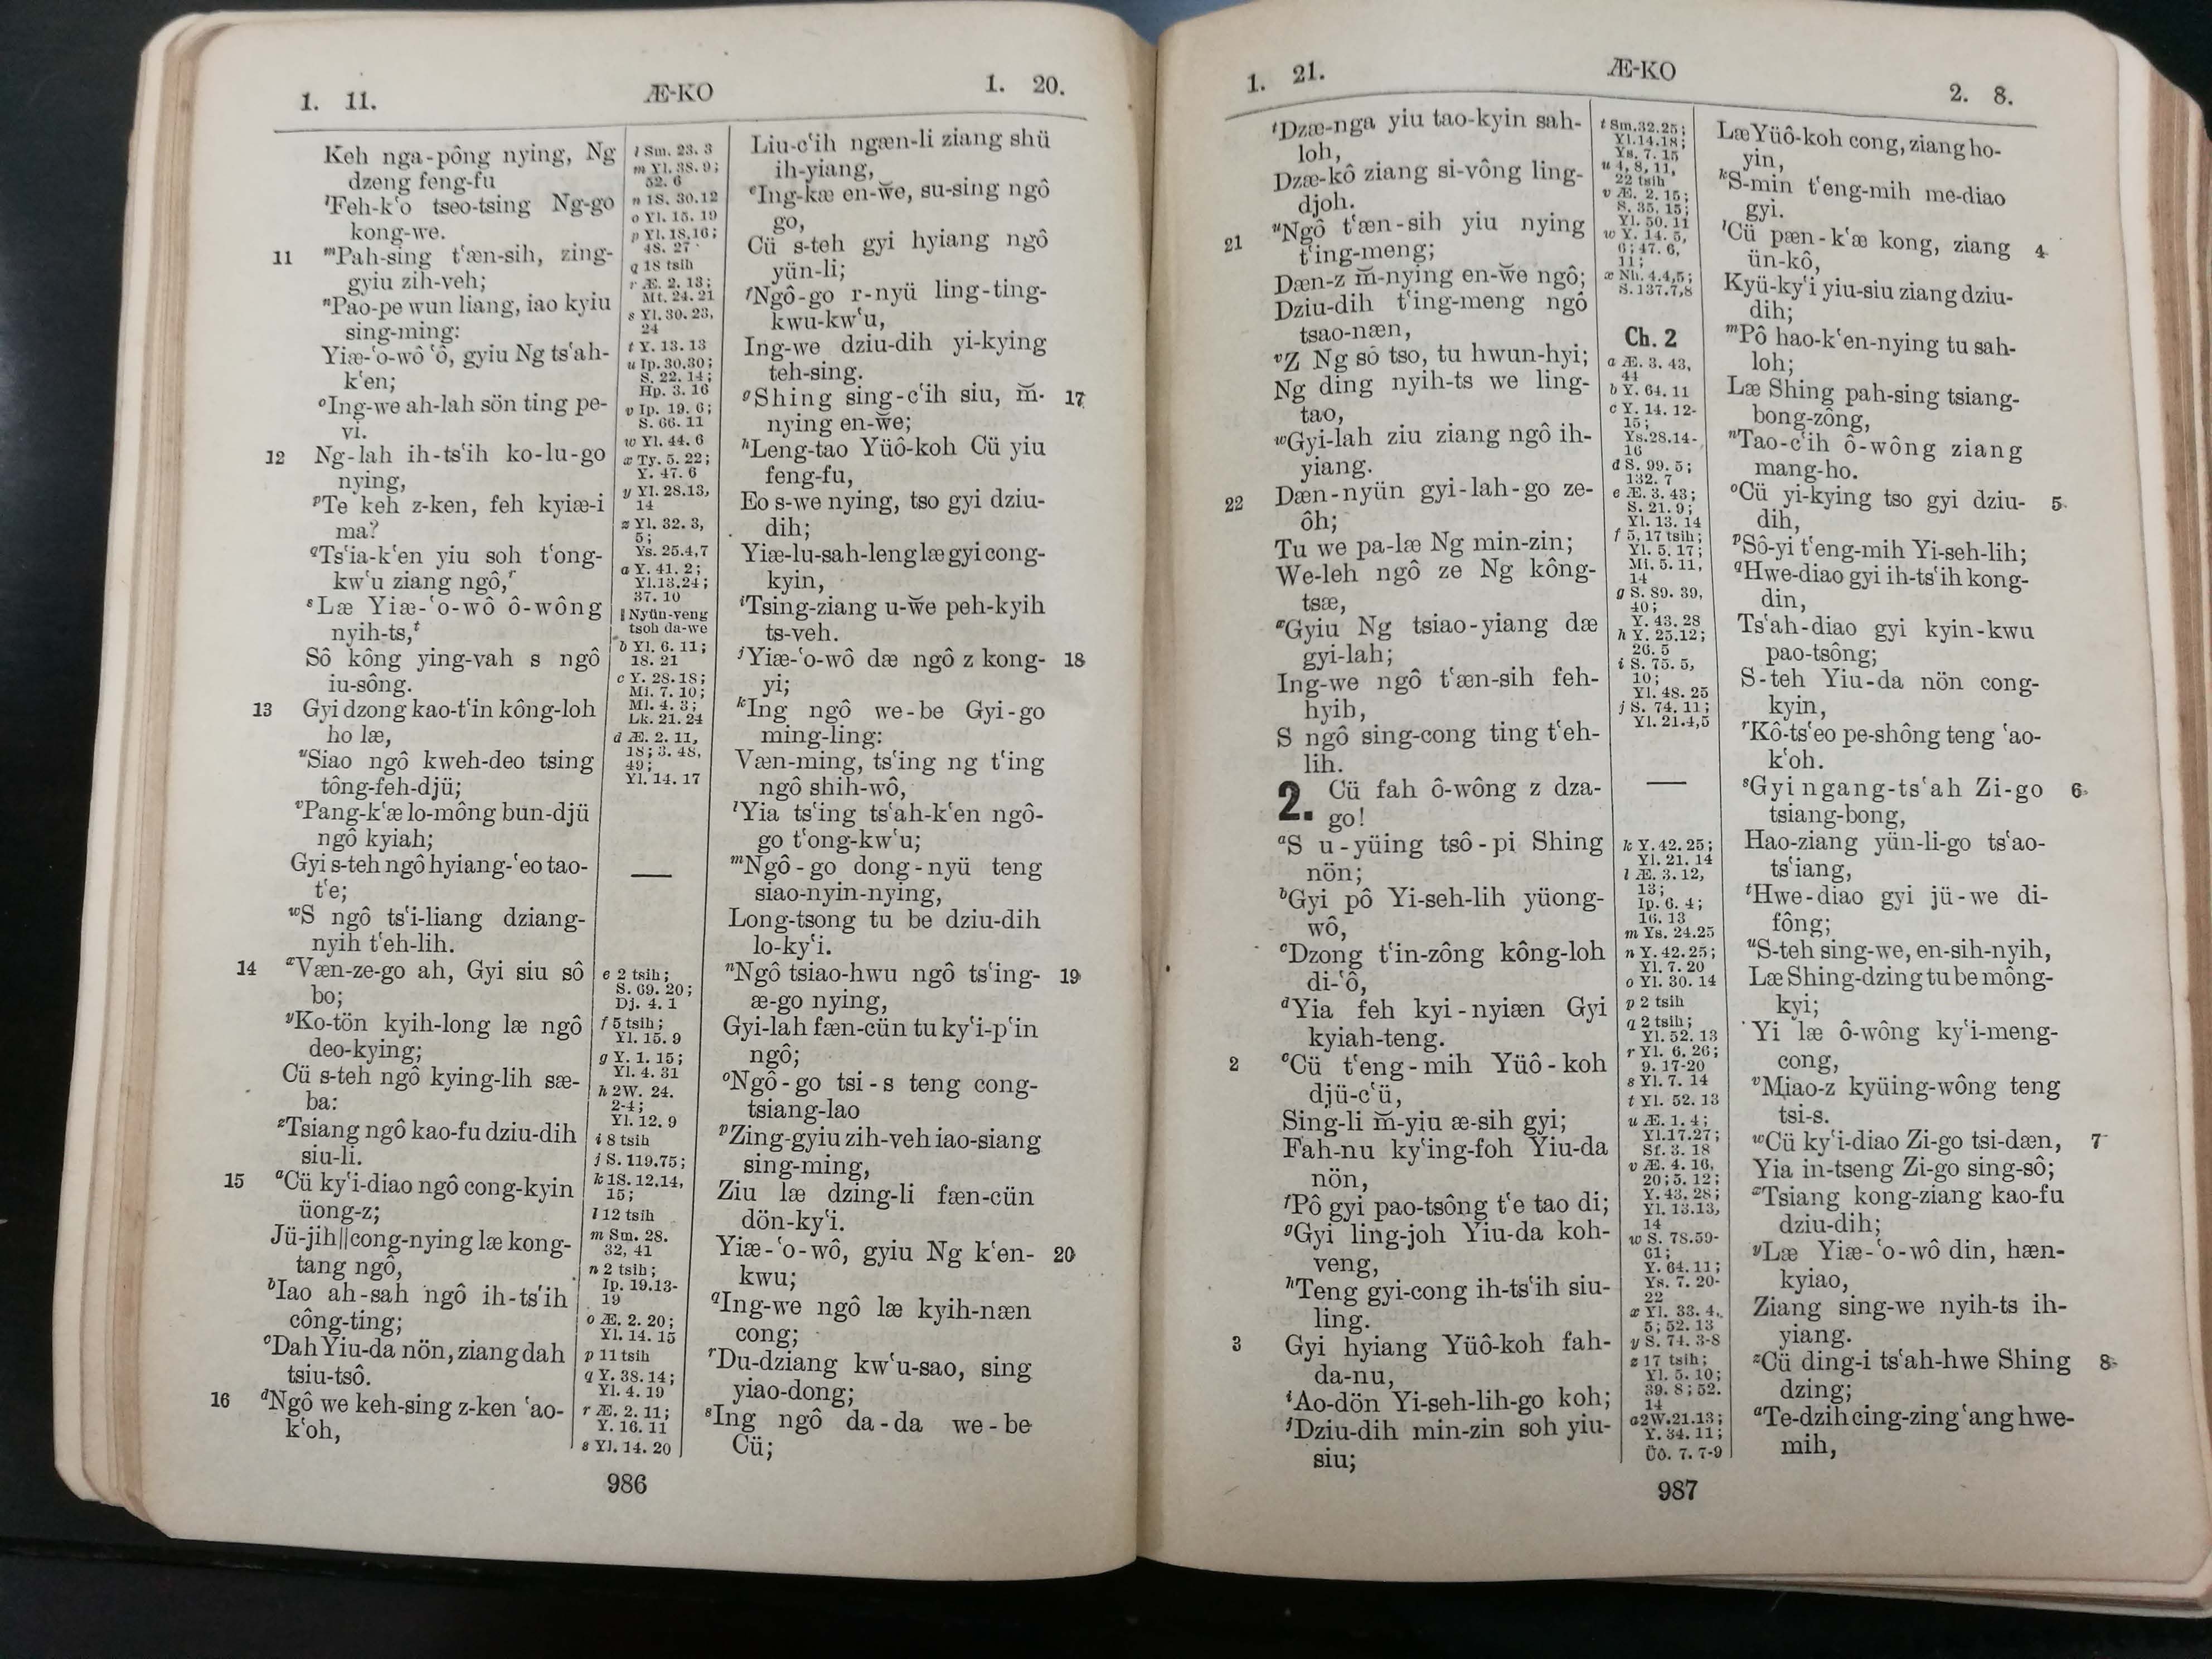 1. 11.
ÆE-KO
1. 20.
Keh nga-pông nying, Ng
dzeng feng-fu
ˡFeh-kʻo tseo-tsing Ng-go
kong-we.
11 ᵐPah-sing tʻæn-sih, zing-
gyiu zih-veh;
ⁿPao-pe wun liang, iao kyiu
sing-ming:
Yiæ-ʻo-wô ʻô, gyiu Ng tsʻah-
kʻen;
ᵒIng-we ah-lah sön ting pe-
vi.
12 Ng-lah ih-tsʻih ko-lu-go
nying,
ᵖTe keh z-ken, feh kyiæ-i
ma?
qTsʻia-kʻen yiu soh tʻong-
kwʻu ziang ngô,ʳ
ˢLæ Yiæ-ʻo-wô ô-wông
nyih-ts,ᵗ
Sô kông ying-vah s ngô
iu-sông.
13 Gyi dzong kao-tʻin kông-loh
ho læ,
ᵘSiao ngô kweh-deo tsing
tông-feh-djü;
ᵛPang-kʻæ lo-mông bun-djü
ngô kyiah;
Gyi s-teh ngô hyiang-ʻeo tao-
tʻe;
ʷS ngô tsʻi-liang dziang-
nyih tʻeh-lih.
14 ˣVæn-ze-go ah, Gyi siu sô
bo;
ʸKo-tön kyih-long læ ngô
deo-kying;
Cü s-teh ngô kying-lih sæ-
ba:
ᶻTsiang ngô kao-fu dziu-dih
siu-li.
15 ᵃCü kyʻi-diao ngô cong-kyin
üong-z;
Jü-jih‖cong-nying læ kong-
tang ngô,
ᵇIao ah-sah ngô ih-tsʻih
công-ting;
ᶜDah Yiu-da nön, ziang dah
tsiu-tsô.
16 ᵈNgô we keh-sing z-ken ʻao-
kʻoh,
l Sm. 23. 3
m Yl. 38. 9;
52. 6
n 1S. 30.12
o Yl. 15. 19
p Yl. 18.16;
48. 27
q 18 tsih
r Æ. 2. 13;
Mt. 24. 21
s Yl. 30. 23,
24
t Y. 13. 13
u Ip. 30.30;
S. 22. 14;
Hp. 3. 16
v Ip. 19. 6;
S. 66. 11
w Yl. 44. 6
x Ty. 5. 22;
Y. 47. 6
y Yl. 28.13,
14
z Yl. 32. 3,
5;
Ys. 25.4,7
a Y. 41. 2;
Yl.13.24;
37. 10
‖ Nyün-veng
tsoh da-we
b Yl. 6. 11;
18. 21
c Y. 28.18;
Mi. 7. 10;
Ml. 4. 3;
Lk. 21. 24
d Æ. 2. 11,
18; 3. 48,
49;
Yl. 14. 17
e 2 tsih;
S. 69. 20;
Dj. 4. 1
f 5 tsih;
Yl. 15. 9
g Y. 1. 15;
Yl. 4. 31
h 2W. 24.
2-4;
Yl. 12. 9
i 8 tsih
j S. 119.75;
k 1S. 12.14,
15;
l 12 tsih
m Sm. 28.
32, 41
n 2 tsih;
Ip. 19.13-
19
o Æ. 2. 20;
Yl. 14. 15
p 11 tsih
q Y. 38. 14;
Yl. 4. 19
r Æ. 2. 11;
Y. 16. 11
s Yl. 14. 20
Liu-cʻih ngæn-li ziang shü
ih-yiang,
ᵉIng-kæ en-we̅, su-sing ngô
go,
Cü s-teh gyi hyiang ngô
yün-li;
ᶠNgô-go r-nyü ling-ting-
kwu-kwʻu,
Ing-we dziu-dih yi-kying
teh-sing.
17 ᵍShing sing-cʻih siu, m̆-
nying en-we̅;
ʰLeng-tao Yüô-koh Cü yiu
feng-fu,
Eo s-we nying, tso gyi dziu-
dih;
Yiæ-lu-sah-leng læ gyi cong-
kyin,
ⁱTsing-ziang u-we̅ peh-kyih
ts-veh.
18 ʲYiæ-ʻo-wô dæ ngô z kong-
yi;
ᵏIng ngô we-be Gyi-go
ming-ling:
Væn-ming, tsʻing ng tʻing
ngô shih-wô,
ˡYia tsʻing tsʻah-kʻen ngô-
go tʻong-kwʻu;
ᵐNgô-go dong-nyü teng
siao-nyin-nying,
Long-tsong tu be dziu-dih
lo-kyʻi.
19 ⁿNgô tsiao-hwu ngô tsʻing-
æ-go nying,
Gyi-lah fæn-cün tu kyʻi-pʻin
ngô;
ᵒNgô-go tsi-s teng cong-
tsiang-lao
ᵖZing-gyiu zih-veh iao-siang
sing-ming,
Ziu læ dzing-li fæn-cün
dön-kyʻi.
20 Yiæ-ʻo-wô, gyiu Ng kʻen-
kwu;
qIng-we ngô læ kyih-næn
cong;
ʳDu-dziang kwʻu-sao, sing
yiao-dong;
ˢIng ngô da-da we-be
Cü;
986
1. 21.
Æ-KO
2. 8.
ᵗDzæ-nga yiu tao-kyin sah-
loh,
Dzæ-kô ziang si-vông ling-
djoh.
21 ᵘNgô tʻæn-sih yiu nying
tʻing-meng;
Dæn-z m̆-nying en-we̅ ngô;
Dziu-dih tʻing-meng ngô
tsao-næn,
ᵛZ Ng sô tso, tu hwun-hyi;
Ng ding nyih-ts we ling-
tao,
ʷGyi-lah ziu ziang ngô ih-
yiang.
22 Dæn-nyün gyi-lah-go ze-
ôh;
Tu we pa-læ Ng min-zin;
We-leh ngô ze Ng kông-
tsæ,
ˣGyiu Ng tsiao-yiang dæ
gyi-lah;
Ing-we ngô tʻæn-sih feh-
hyih,
S ngô sing-cong ting tʻeh-
lih.
2. Cü fah ô-wông z dza-
go!
ᵃS u-yüing tsô-pi Shing
nön;
ᵇGyi pô Yi-seh-lih yüong-
wô,
ᶜDzong tʻin-zông kông-loh
di-ʻô,
ᵈYia feh kyi-nyiæn Gyi
kyiah-teng.
2 ᵉCü tʻeng-mih Yüô-koh
djü-cʻü,
Sing-li m̆-yiu æ-sih gyi;
Fah-nu kyʻing-foh Yiu-da
nön,
ᶠPô gyi pao-tsông tʻe tao di;
ᵍGyi ling-joh Yiu-da koh-
veng,
ʰTeng gyi-cong ih-tsʻih siu-
ling.
3 Gyi hyiang Yüô-koh fah-
da-nu,
ⁱAo-dön Yi-seh-lih-go koh;
ʲDziu-dih min-zin soh yiu-
siu;
t Sm.32.25;
Yl.14.18;
Ys. 7. 15
u 4, 8, 11,
22 tsih
v Æ. 2. 15;
S. 35. 15;
Yl. 50. 11
w Y. 14. 5,
6; 47. 6,
11;
x Nh. 4.4,5;
S.137.7,8
Ch. 2
a Æ. 3. 43,
44
b Y. 64. 11
c Y. 14. 12-
15;
Ys.28.14-
16
d S. 99. 5;
132. 7
e Æ. 3. 43;
S. 21. 9;
Yl. 13. 14
f 5, 17 tsih;
Yl. 5. 17;
Mi. 5. 11,
14
g S. 89. 39,
40;
Y. 43. 28
h Y. 25.12;
26. 5
i S. 75. 5,
10;
Yl. 48. 25
j S. 74. 11;
Yl. 21.4,5
k Y. 42. 25;
Yl. 21. 14
l Æ. 3. 12,
13;
Ip. 6. 4;
16. 13
m Ys. 24.25
n Y. 42. 25;
Yl. 7. 20
o Yl. 30. 14
p 2 tsih
q 2 tsih;
Yl. 52. 13
r Yl. 6. 26;
9. 17-20
s Yl. 7. 14
t Yl. 52. 13
u Æ. 1. 4;
Yl.17.27;
Sf. 3. 18
v Æ. 4. 16,
20; 5. 12;
Y. 43. 28;
Yl. 13.13,
14
w S. 78.59-
61;
Y. 64. 11;
Ys. 7. 20-
22
x Yl. 33. 4,
5; 52. 13
y S. 74. 3-8
z 17 tsih;
Yl. 5. 10;
39. 8; 52.
14
a 2W.21.13;
Y. 34. 11;
Üô. 7. 7-9
Læ Yüô-koh cong, ziang ho-
yin,
ᵏS-min tʻeng-mih me-diao
gyi.
4 ˡCü pæn-kʻæ kong, ziang
ün-kô,
Kyü-kyʻi yiu-siu ziang dziu-
dih;
ᵐPô hao-kʻen-nying tu sah-
loh;
Læ Shing pah-sing tsiang-
bong-zông,
ⁿTao-cʻih ô-wông ziang
mang-ho.
5 ᵒCü yi-kying tso gyi dziu-
dih,
ᵖSô-yi tʻeng-mih Yi-seh-lih;
qHwe-diao gyi ih-tsʻih kong-
din,
Tsʻah-diao gyi kyin-kwu
pao-tsông;
S-teh Yiu-da nön cong-
kyin,
ʳKô-tsʻeo pe-shông teng ʻao-
kʻoh.
6 ˢGyi ngang-tsʻah Zi-go
tsiang-bong,
Hao-ziang yün-li-go tsʻao-
tsʻiang,
ᵗHwe-diao gyi jü-we di-
fông;
ᵘS-teh sing-we, en-sih-nyih,
Læ Shing-dzing tu be mông-
kyi;
Yi læ ô-wông kyʻi-meng-
cong,
ᵛMiao-z kyüing-wông teng
tsi-s.
7 ʷCü kyʻi-diao Zi-go tsi-dæn,
Yia in-tseng Zi-go sing-sô;
ˣTsiang kong-ziang kao-fu
dziu-dih;
ʸLæ Yiæ-ʻo-wô din, hæn-
kyiao,
Ziang sing-we nyih-ts ih-
yiang.
8 ᶻCü ding-i tsʻah-hwe Shing
dzing;
ᵃTe-dzih cing-zing ʻang hwe-
mih,
987